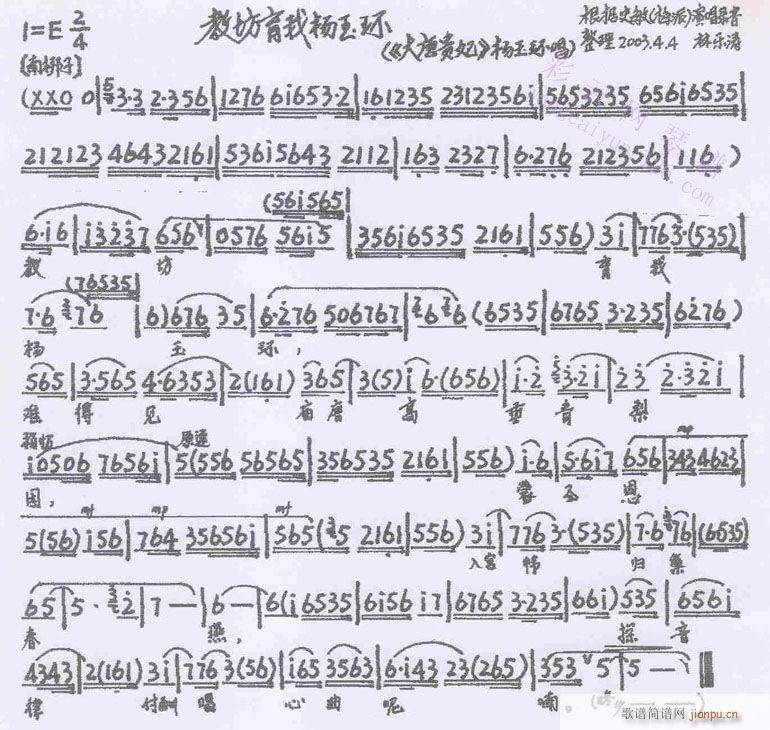 教坊育我杨玉环
1=E 2/4
(《大唐贵妃》杨玉环唱)
根据史敏(梅派)演唱录音
整理 2003.4.4 林乐清
[南梆子]
(XX0 0|3·3 2·356|1276 61653·2|161235 23123561|5653235 65616535|
212123 46432161|53615643 2112|163 2327|6·276 212356|116)
(561565)
6·16|13237 656|0576 5615|35616535 2161|556) 31|7763·(535)|
教 坊 育 我
(76535)
7·6 76|6)676 35|6·276 506767|66 (6535|6765 3·235|6276)
杨 玉 环,
565|3·565 4·6353|2(161) 365|3(5)1 6·(656)|1·2 3·21|23 2·321|
难 得 见 唐 高 垂 音 梨
稍快 原速 mp
10506 76561|5(556 56565|356535 2161|556) 1·6|5·617 656|3434623|
园, 蒙 圣 恩
mf mp mf
5(56) 156|764 356561|565(5 2161|556) 31|776 3·(535)|7·6 76|(6535)
入宫 帏 归 集
65|5· 2|7 —|6 —|6(16535|6156 17|6765 3·235|661) 535|6561
春 燕, 探 音
4343|2(161) 31|776 3(56)|165 3563|6·143 23(265)|353 5|5 —|
律 付酬 唱 心 曲 呢 喃。
歌谱简谱网
jianpu.cn